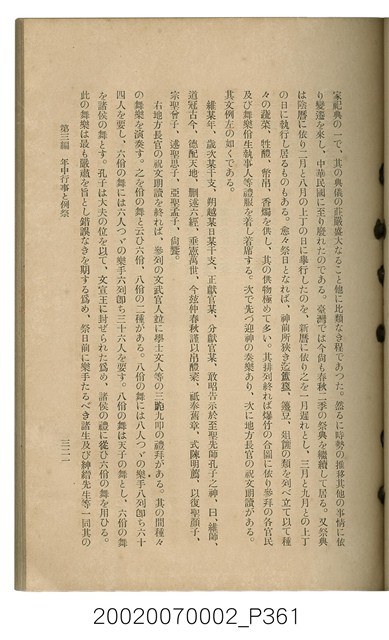 家祀典の一で、其の典儀の莊嚴盛大なること他に比類なき程であつた。然るに時勢の推移其他の事情に依
り變遷を來し、中華民國に至り廢れたのである。臺灣では今尚も春秋二季の祭典を繼續して居る。又祭典
は陰曆に依り二月と八月の上丁の日に擧行したのを、新曆に依り之を一月遲れとし、三月と九月との上丁
の日に執行し居るものもある。愈々祭日となれば、神前所狹き迄簠簋、籩豆、俎鉶の類を列べ立て以て種
々の蔬菜、牲醴、幣帛、香燭を供し、其の供物極めて多い。其排列終れば爆竹の合圖に依り參拜の各官民
及び舞樂佾生執事人等禮服を着し着席する。次で先づ迎神の奏樂あり、次に地方長官の祝文朗讀がある。
其文例左の如くである。
維某年、歲次某干支、朔越某日某干支、正獻官某、分獻官某、敢昭告示於至聖先師孔子之神、曰、維師、
道冠古今、德配天地、刪述六經、垂憲萬世、今兹仲春秋謹以帛醴粢、祗奉舊章、式陳明薦、以復聖顏子、
宗聖曾子、述聖思子、亞聖孟子、尙饗。
右地方長官の祝文朗讀を終れば、參列の文武官人竝に學士文人等の三跪九叩の禮拜がある。其の間種々
の舞樂を演奏す。之を佾の舞と云ひ六佾、八佾の二種がある。八佾の舞には八人づゝの樂手八列卽ち六十
四人を要し、六佾の舞には六人づゝの樂手六列卽ち三十六人を要す。八佾の舞は天子の舞とし、六佾の舞
を諸侯の舞とす。孔子は大夫の位を以て、文宣王に封ぜられた爲め、諸侯の禮に從ひ六佾の舞を用ひる。
此の舞樂は最も嚴肅を旨とし錯誤なきを期する爲め、祭日前に樂手たるべき諸生及び紳縉先生等一同其の
第三編 年中行事と例祭
三二一
20020070002_P361